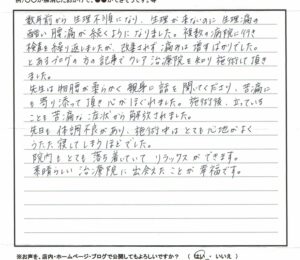 数年前から生理不順になり、生理が来ないのに生理痛の
酷い腹痛が続くようになりました。複数の病院に行き
検査を繰り返しましたが、改善されず痛みは増すばかりでした。
とあるブログの方の記事でクレア治療院を知り施術して頂
きました。
先生は相槌が柔らかく親身に話を聞いてくださり、苦痛に
も寄り添って頂き心がほぐれました。施術後、立っている
ことも苦痛な症状から解放されました。
先日も体調不良があり、施術中はとても心地がよく
うたた寝してしまうほどでした。
院内もとても落ち着いていてリラックスができます。
素晴らしい治療院に出会えたことが幸福です。
※お声を、店内・ホームページ・ブログで公開してもよろしいですか？（ はい ・ いいえ ）